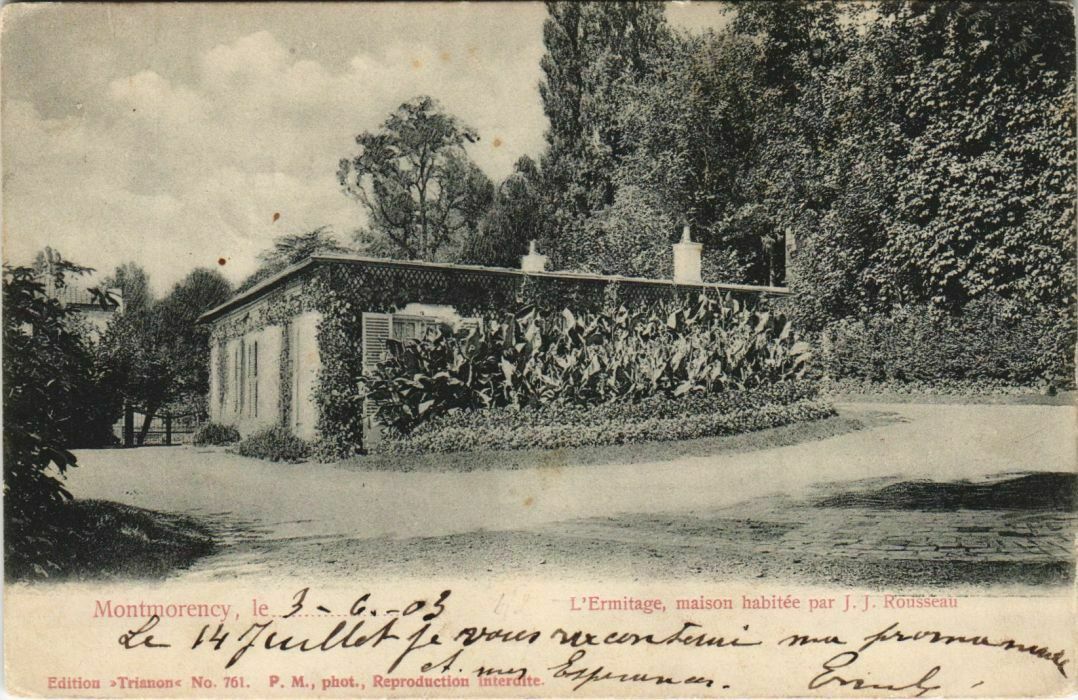 Montmorency, le 3-6-03
L'Ermitage, maison habitée par J. J. Rousseau
Le 14 Juillet je vous raconterai ma promenade
et mes Esperances.
Edition »Trianon« No. 761. P. M., phot., Reproduction interdite.